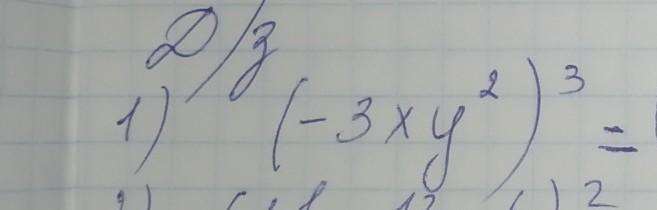 Д/з
1) (-3xy²)³ =